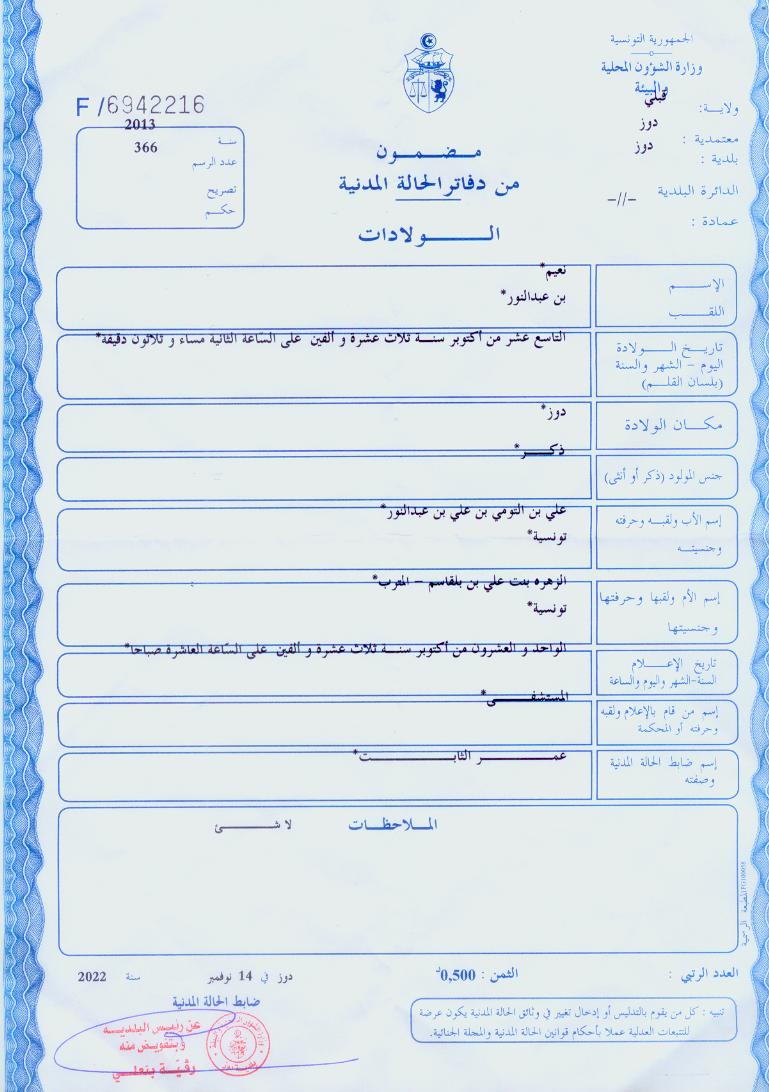 الجمهورية التونسية
وزارة الشؤون المحلية
والبيئة
ولايـــة: قبلي
معتمدية : دوز
بلدية : دوز
الدائرة البلدية –//–
عمادة :
F /6942216
سنة 2013
عدد الرسم 366
تصريح
حكم
مضمون
من دفاتر الحالة المدنية
الـولادات
الإسم نعيم*
اللقب بن عبدالنور*
تاريخ الولادة التاسع عشر من أكتوبر سنة ثلاث عشرة و ألفين على الساعة الثانية مساء و ثلاثون دقيقة*
اليوم – الشهر والسنة
(بلسان القلم)
مكان الولادة دوز*
جنس المولود (ذكر أو أنثى) ذكر*
إسم الأب ولقبه وحرفته علي بن التومي بن علي بن عبدالنور*
وجنسيته تونسية*
إسم الأم ولقبها وحرفتها الزهره بنت علي بن بلقاسم – المغرب*
وجنسيتها تونسية*
تاريخ الإعلام الواحد و العشرون من أكتوبر سنة ثلاث عشرة و ألفين على الساعة العاشرة صباحا*
السنة-الشهر واليوم والساعة
إسم من قام بالإعلام ولقبه المستشفى*
وحرفته أو المحكمة
إسم ضابط الحالة المدنية عمر الثابت*
وصفته
الملاحظات لا شئ
المطبعة الرسمية
العدد الرتبي :
الثمن : 0,500د
دوز في 14 نوفمبر سنة 2022
ضابط الحالة المدنية
عن رئيس البلدية
وبتفويض منه
رقية بنعلي
تنبيه : كل من يقوم بالتدليس أو إدخال تغيير في وثائق الحالة المدنية يكون عرضة
للتتبعات العدلية عملا بأحكام قوانين الحالة المدنية والمجلة الجنائية.